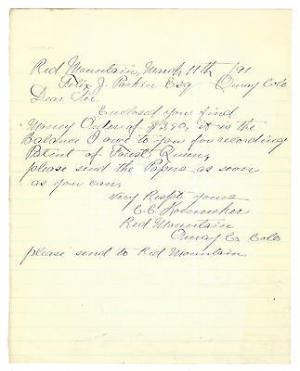 Red Mountain, March 11th /91
Felix J. Parker Esq Ouray Colo
Dear Sir
Enclosed you find
Money Order of $2.90, it is the
Balance I owe to you for recording
Patent of Forest Queen,
please send the Papers as soon
as you can,
Very Respt yours
C.C.
Red Mountain
Ouray Co Colo
please send to Red Mountain